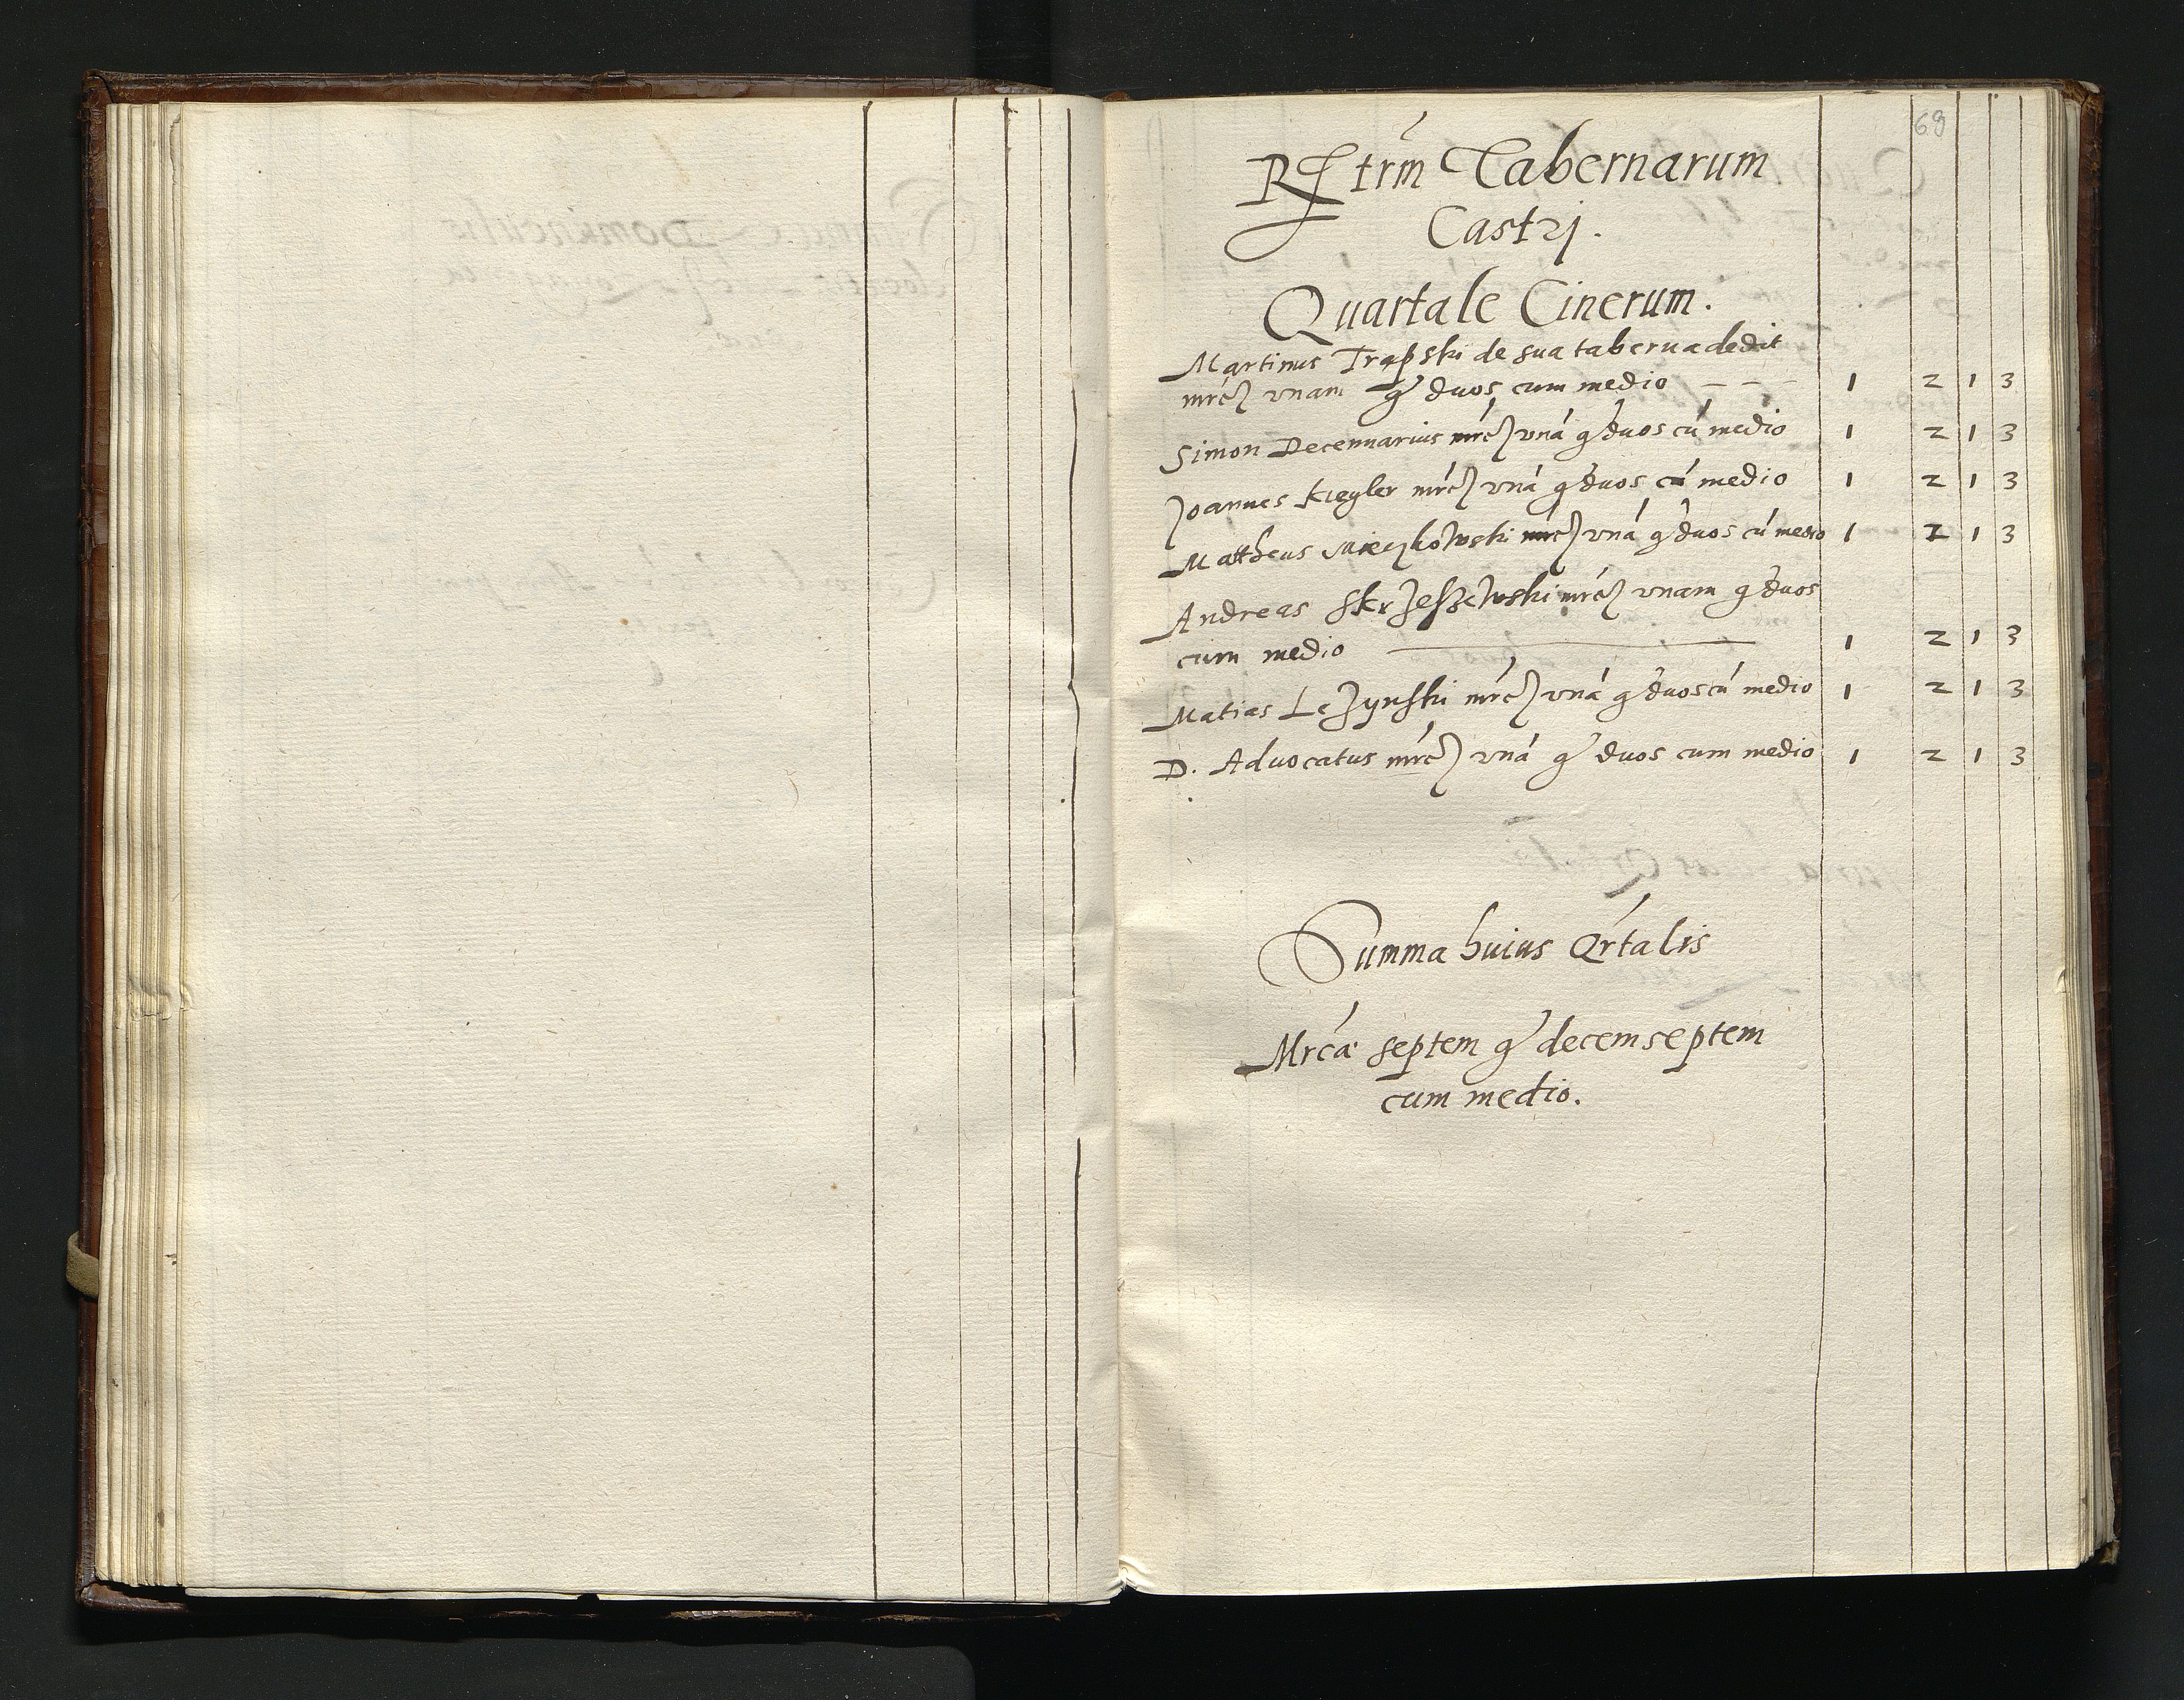 69
Rgtrm Tabernarum
Castrj.
Quartale Cinerum.
Martinus Trapski de sua taberna dedit
mrc unam g duos cum medio - - - 1 2 1 3
Simon Decennarius mrc vná g duos cú medio 1 2 1 3
Joannes Kieyler mrc vná g duos cú medio 1 2 1 3
Mattheus mrc vná g duos cú medio 1 2 1 3
Andreas mrc vnam g duos
cum medio 1 2 1 3
Matias mrc vná g duos cú medio 1 2 1 3
D. Advocatus mrc vná g duos cum medio 1 2 1 3
Summa huius Qrtalis
Mrca septem g decemseptem
cum medio.